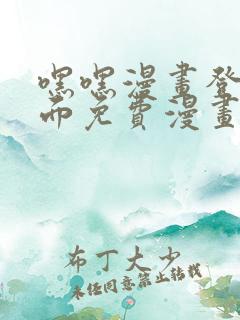 嘿嘿漫畫登
面免費漫畫
布丁大少
未经同意禁止转载